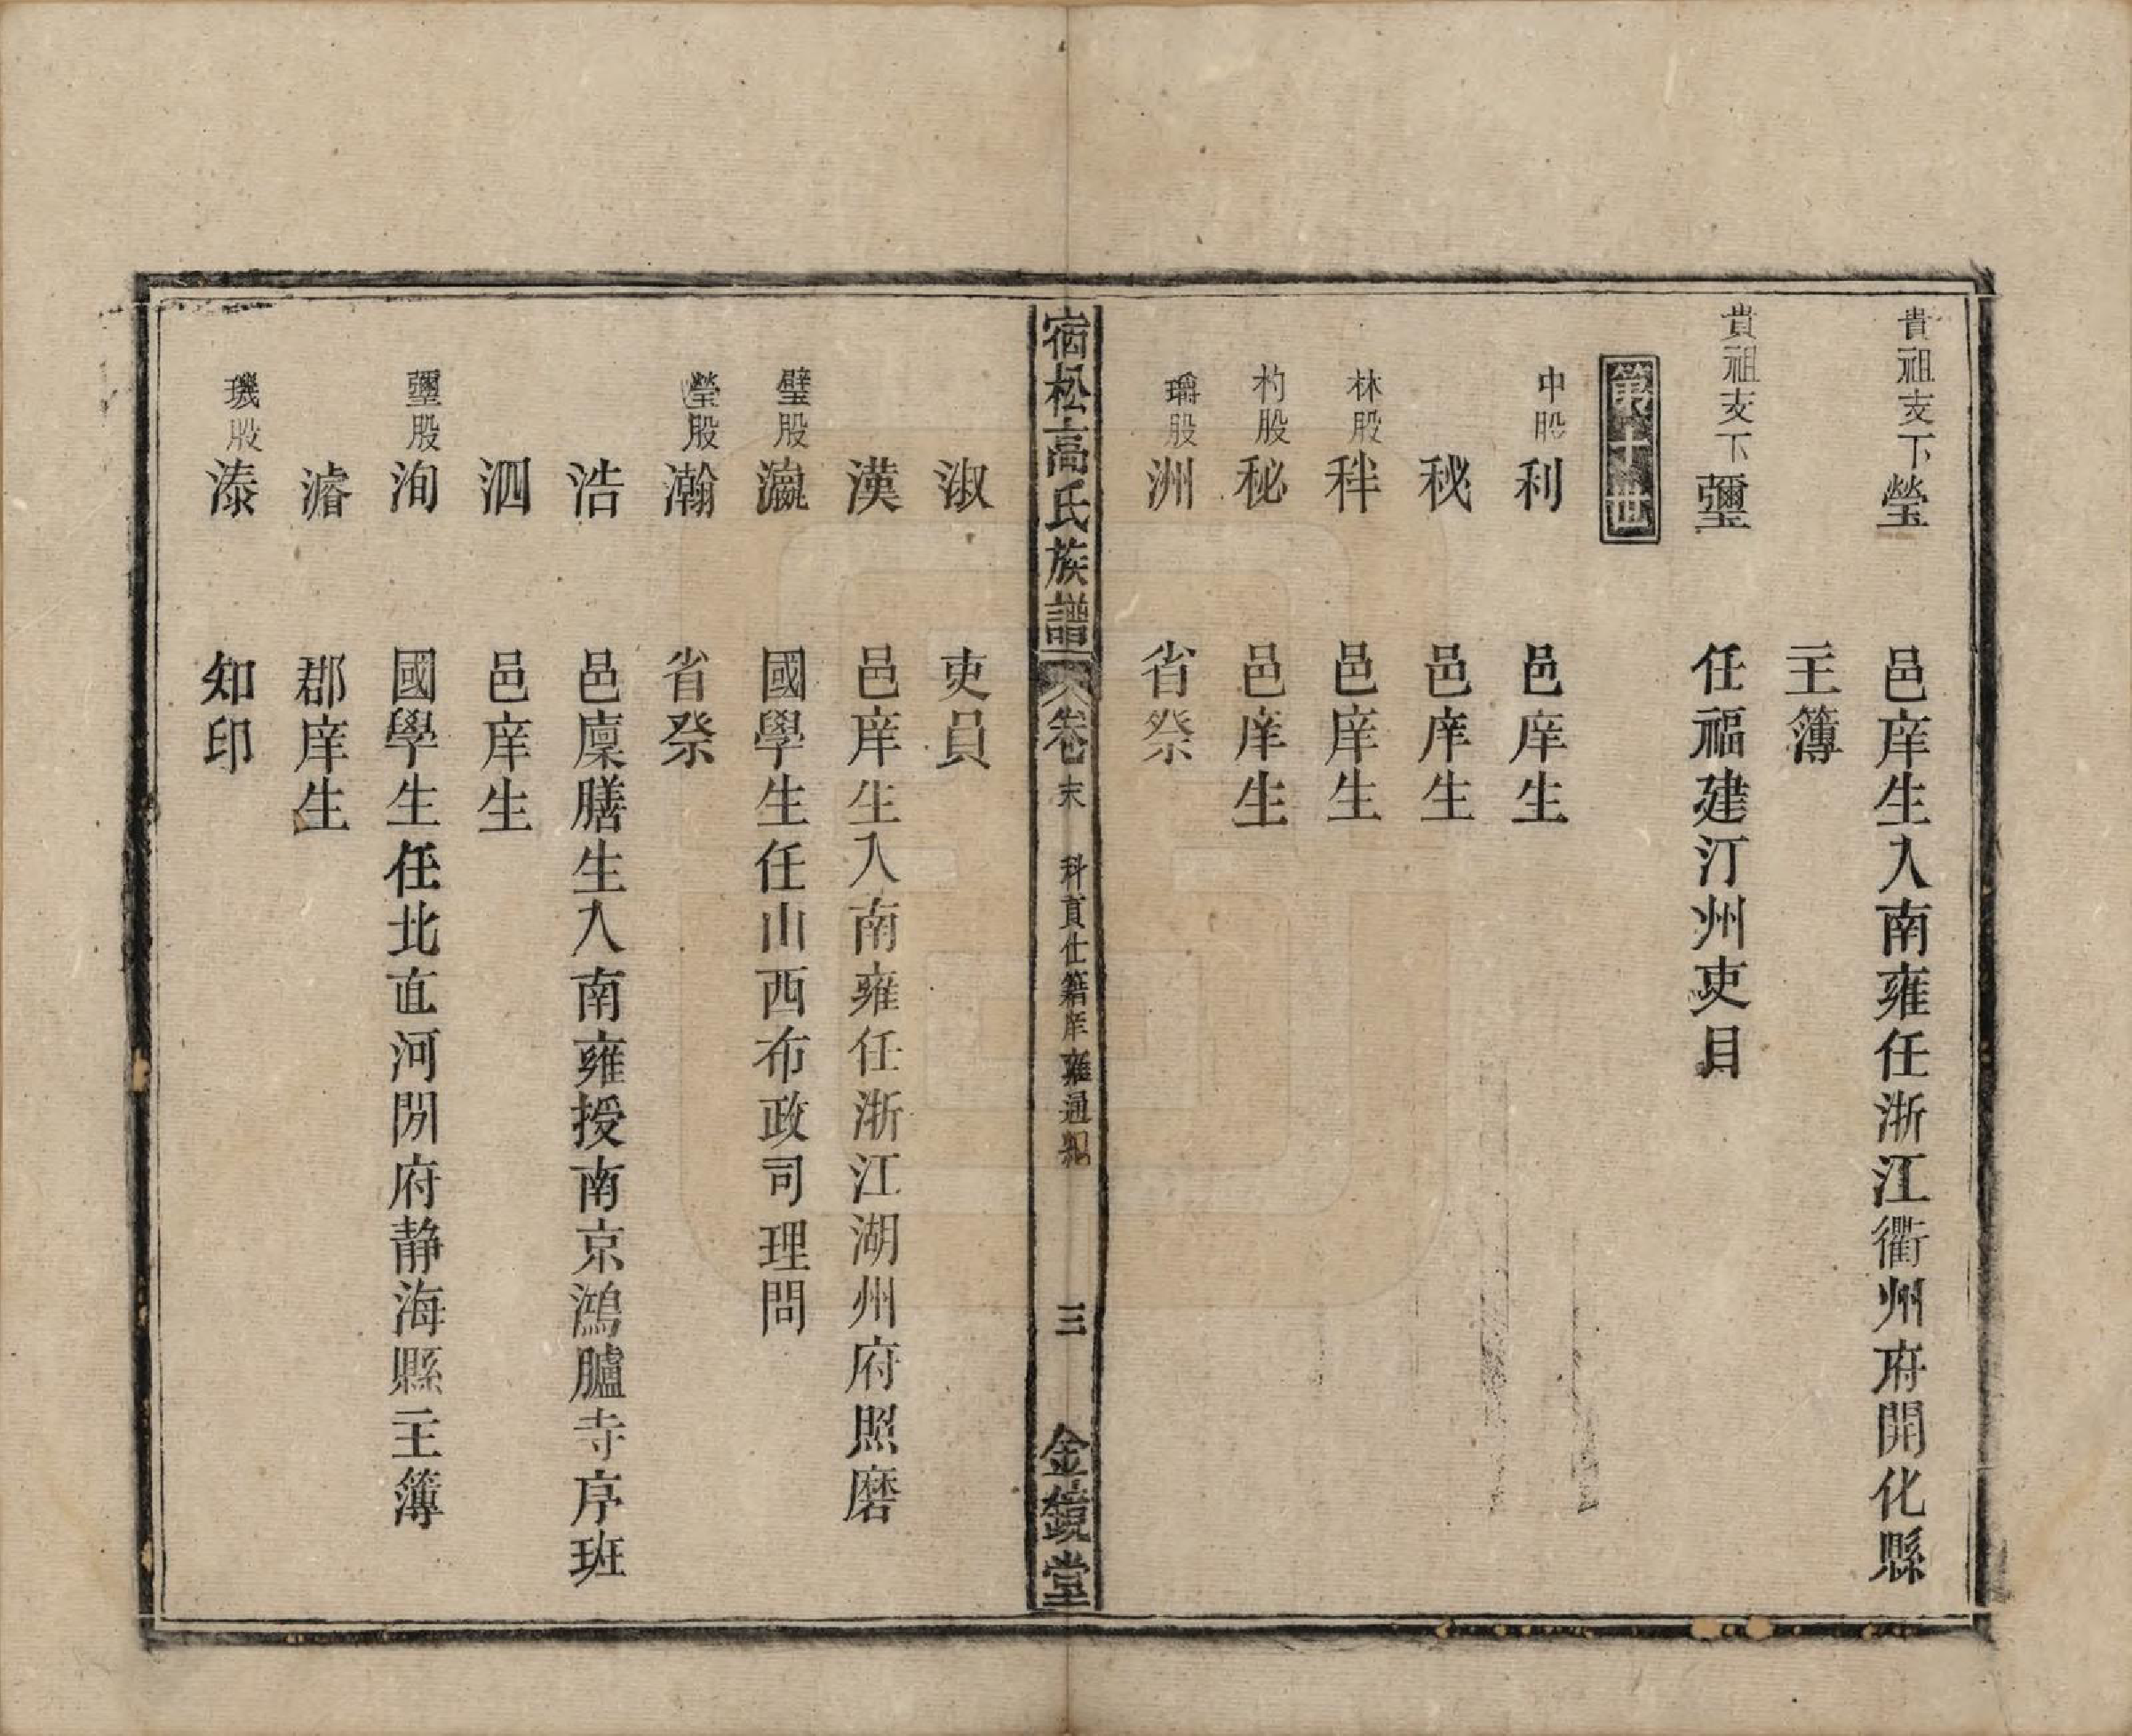 貴祖支下瑩 邑庠生入南雍任浙江衢州府開化縣
主簿
貴祖支下璽 任福建汀州吏目
第十世
中股利 邑庠生
秘 邑庠生
林股秚 邑庠生
杓股秘 邑庠生
股洲 省祭
宿松高氏族譜 卷末 科貢仕籍庠雍通紀 三 金鏡堂
淑 吏員
漢 邑庠生入南雍任浙江湖州府照磨
璧股瀛 國學生任山西布政司理問
瑩股瀚 省祭
浩 邑廩膳生入南雍授南京鴻臚寺序班
泗 邑庠生
璽股洵 國學生任北直河間府静海縣主簿
濬 郡庠生
璣股溙 知印